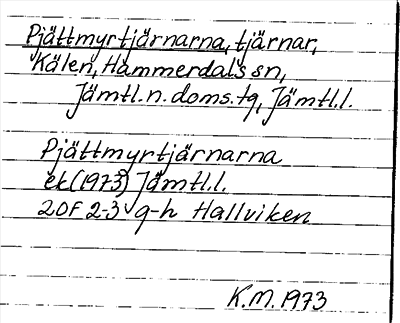 Pjättmyrtjärnarna, tjärnar,
Kälen, Hammerdals sn,
Jämtl.n.doms.tg, Jämtl.l.
Pjättmyrtjärnarna
ek(1973) Jämtl.l.
20F 2-3 g-h Hallviken
K.M. 1973